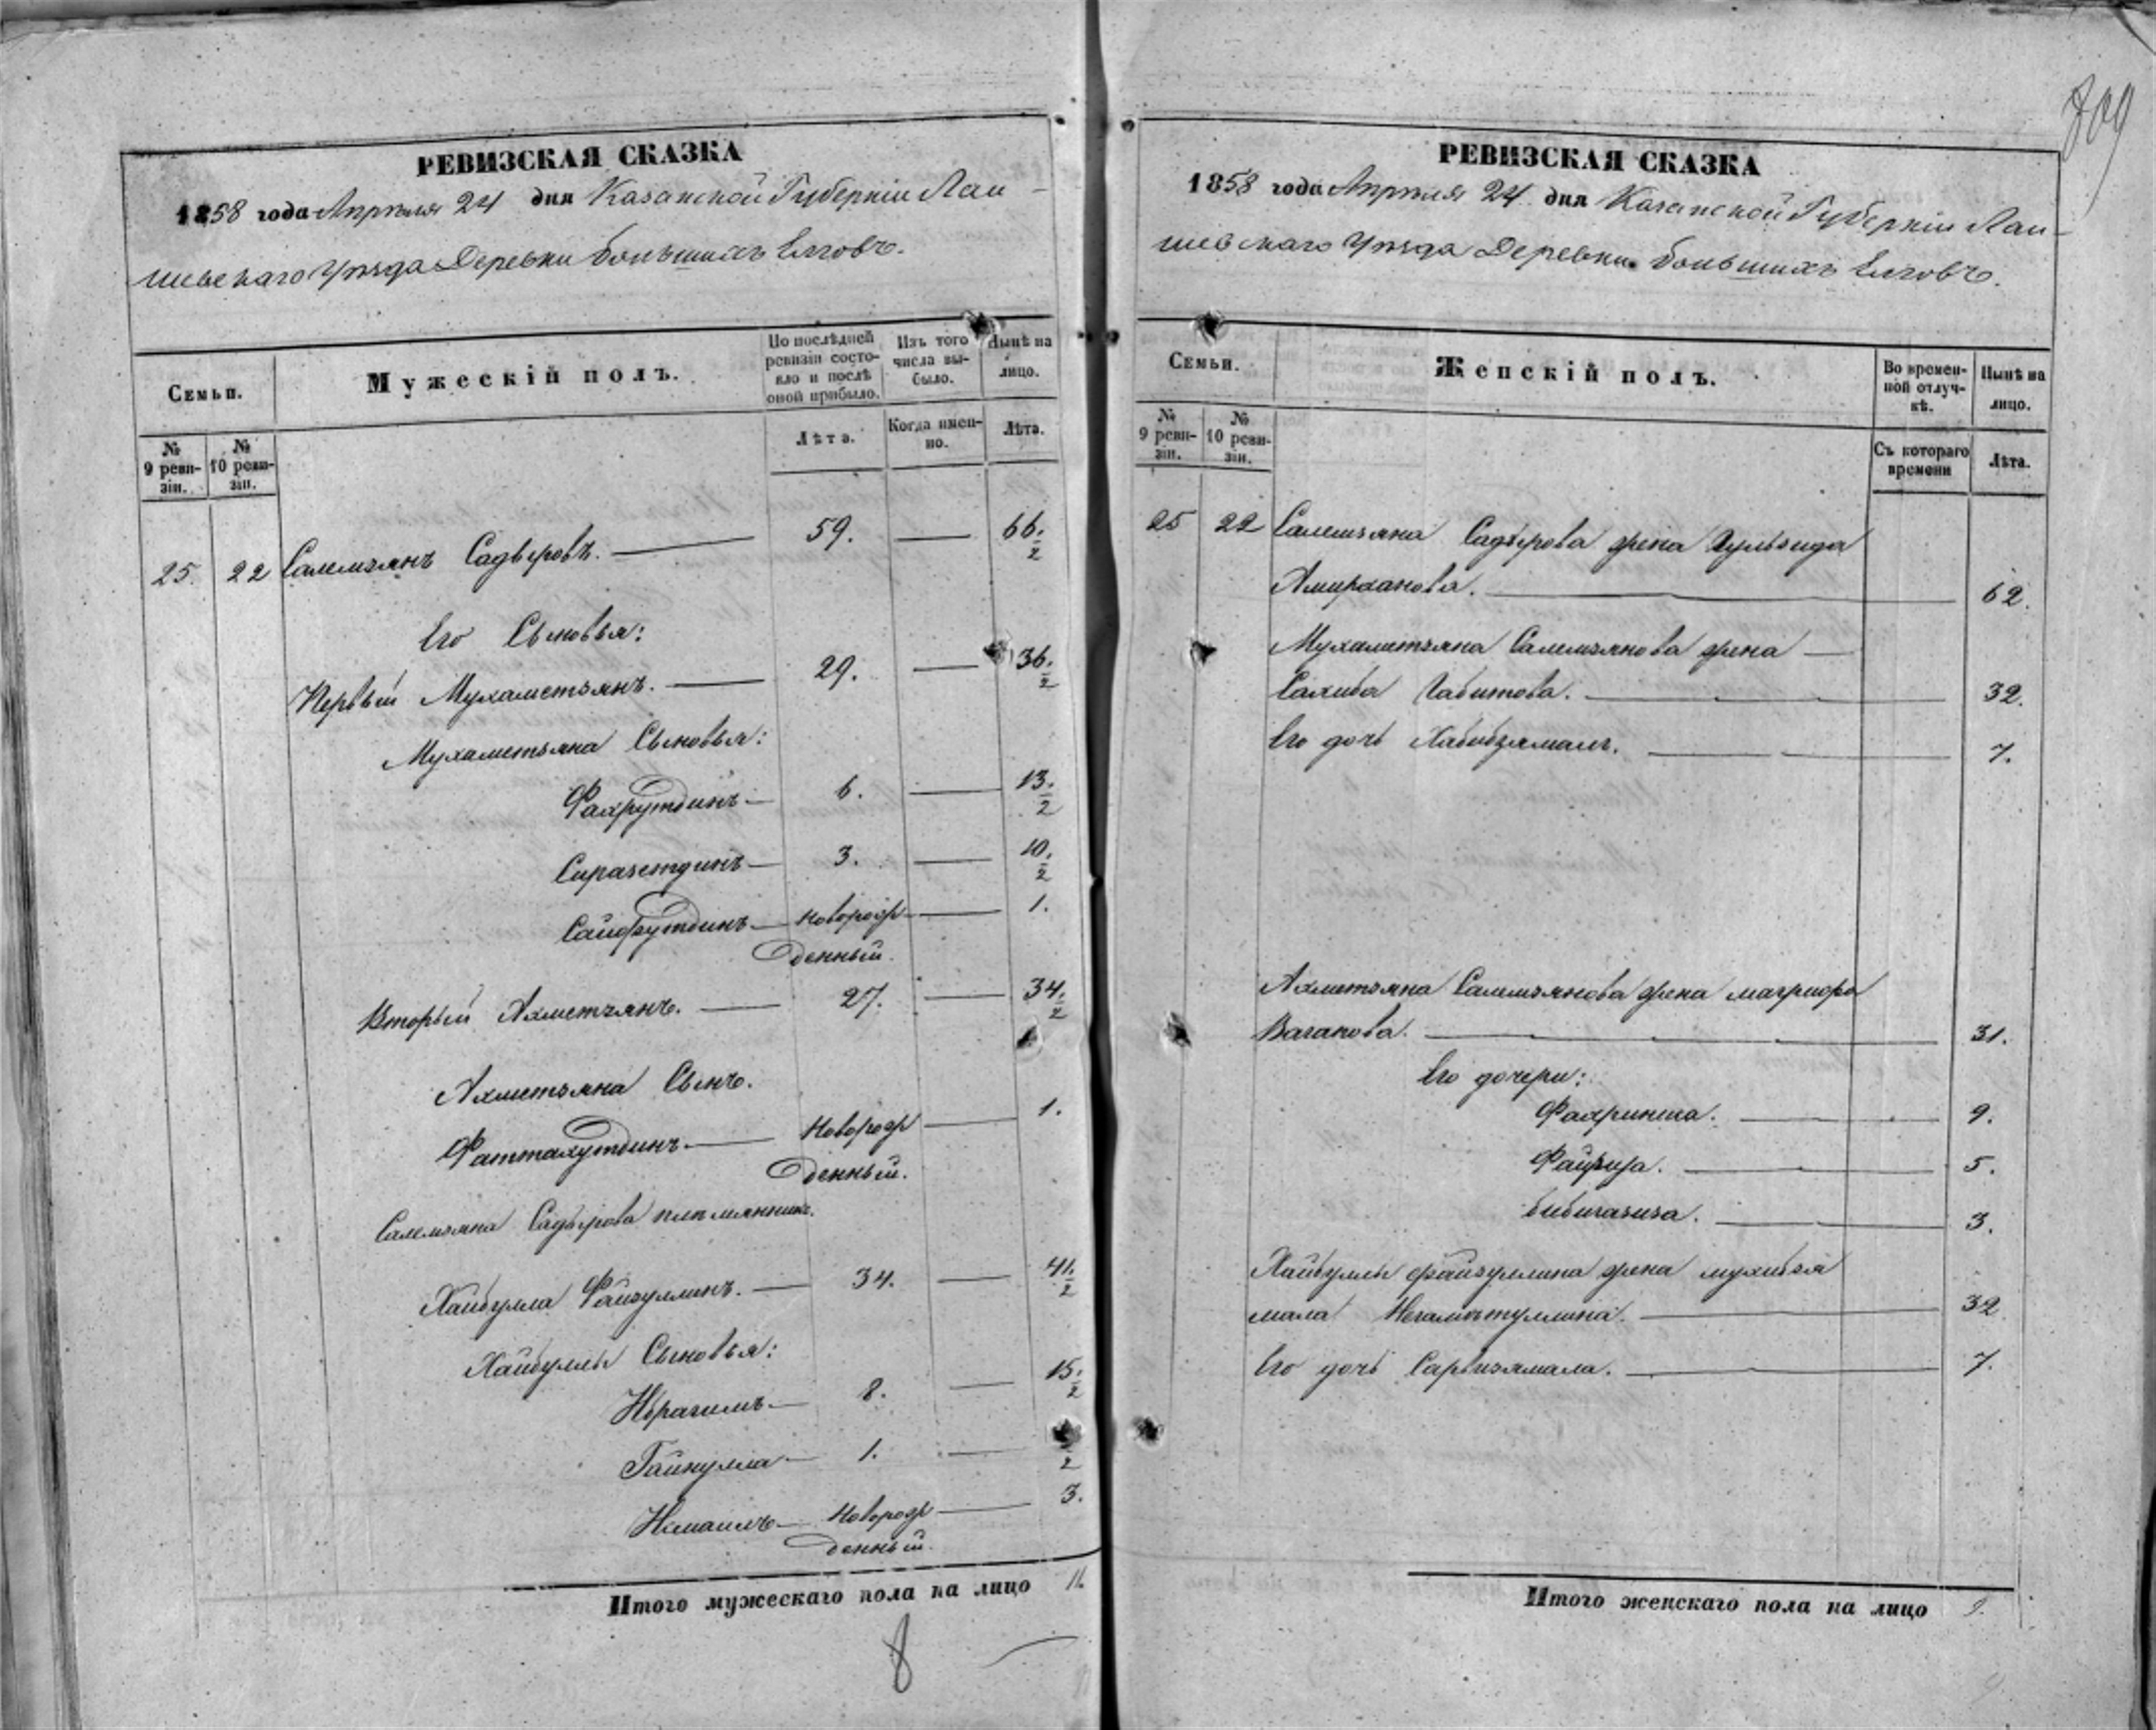 809
РЕВИЗСКАЯ СКАЗКА
1858 года Апрѣля 24 дня Казанской Губерніи Лаи-
шевскаго Уѣзда Деревни Большихъ Елговъ.
Семьи.
Мужескій полъ.
По послѣдней ревизіи состояло и послѣ оной прибыло.
Изъ того числа выбыло.
Нынѣ на лицо.
№ 9 ревизіи.
№ 10 ревизіи.
Лѣта.
Когда именно.
Лѣта.
25. 22 Салемзянъ Садыровъ. — 59. — 66.½
Его Сыновья:
Первый Мухаметзянъ. — 29. — 36.½
Мухаметзяна Сыновья:
Фахрутдинъ — 6. — 13.½
Сиразетдинъ — 3. — 10.½
Сайфутдинъ — новорож- — 1.
денный.
Вторый Ахметзянъ. — 27. — 34.½
Ахметзяна Сынъ.
Фаттахутдинъ — Новорож — 1.
денный.
Салемзяна Садырова племянникъ.
Хайбулла Файзуллинъ. — 34. — 41.½
Хайбуллы Сыновья:
Ибрагимъ — 8. — 15.½
Гайнулла — 1. —
Исмаилъ — Новорож — 3.
денный.
Итого мужескаго пола на лицо 11.
8
РЕВИЗСКАЯ СКАЗКА
1858 года Апрѣля 24 дня Казанской Губерніи Лаи-
шевскаго Уѣзда Деревни Большихъ Елговъ.
Семьи.
Женскій полъ.
Во временной отлучкѣ.
Нынѣ на лицо.
№ 9 ревизіи.
№ 10 ревизіи.
Съ котораго времени
Лѣта.
25 22 Салемзяна Садырова жена Гульзида
Амирханова. — 62.
Мухаметзяна Салемзянова жена —
Сахиба Габитова. — 32.
Его дочь Хабибзямалъ. — 7.
Ахметзяна Салемзянова жена
Вагапова. — 31.
Его дочери:
Фахриниса. — 9.
Файзиза. — 5.
Бибигазиза. — 3.
Хайбуллы Файзуллина жена мухибзя
мала Негаматуллина. — 32
Его дочь Сарвизямала. — 7.
Итого женскаго пола на лицо 9.